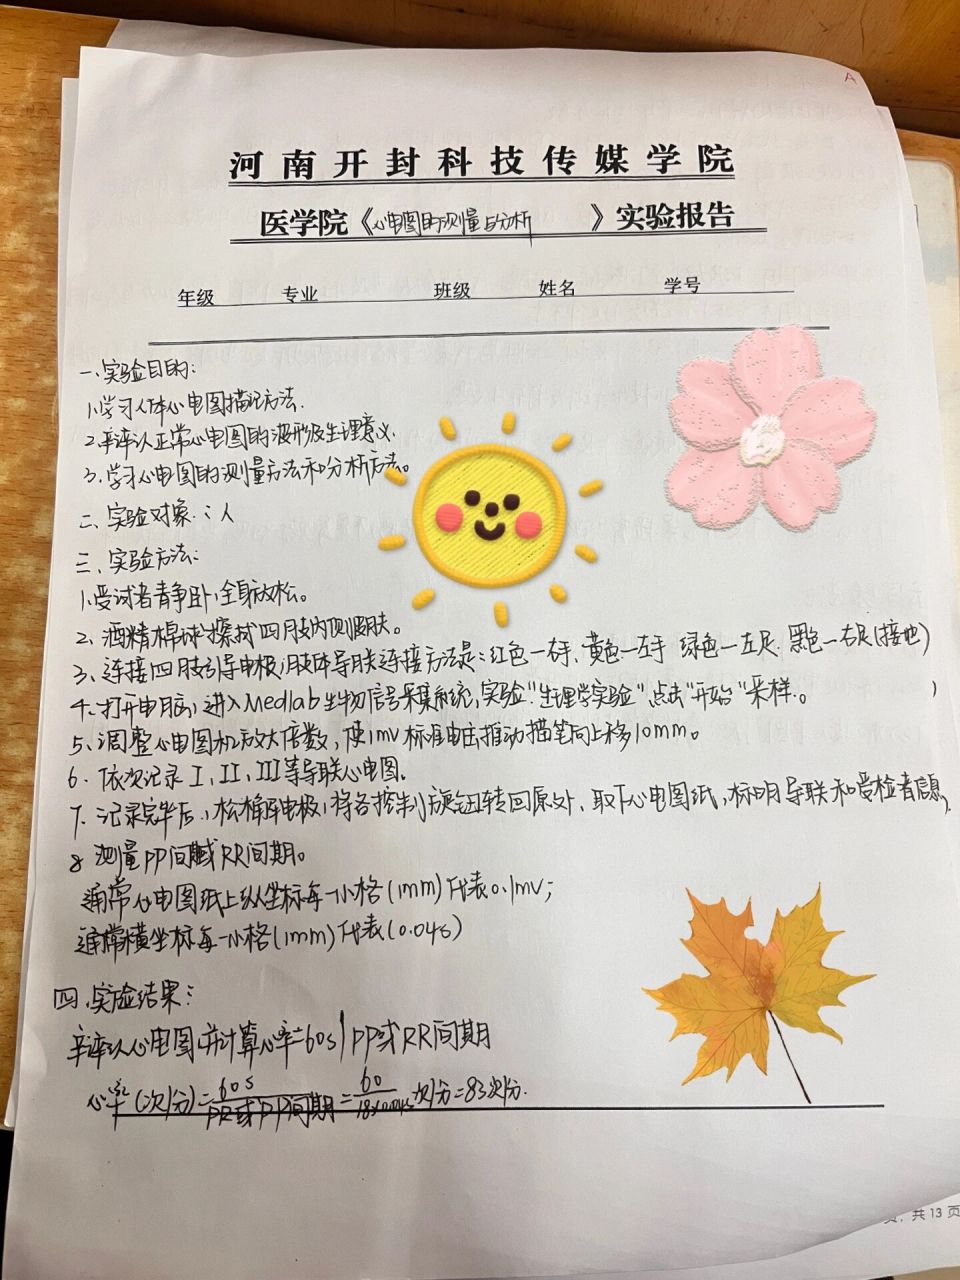 A
河南开封科技传媒学院
医学院《心电图的测量与分析》实验报告
年级 专业 班级 姓名 学号
一、实验目的:
1、学习人体心电图描记方法.
2、辨认正常心电图的波形及生理意义.
3、学习心电图的测量方法和分析方法。
二、实验对象:人
三、实验方法:
1、受试者静卧,全身放松。
2、酒精棉球擦拭四肢内侧皮肤。
3、连接四肢引导电极,肢体导联连接方法是:红色—右手、黄色—左手 绿色—左足、黑色—右足(接地)
4、打开电脑,进入Medlab生物信号采集系统,实验"生理学实验"点击"开始"采样。
5、调整心电图机放大倍数,使1mv标准电压推动描笔向上移10mm。
6、依次记录I,II,III等导联心电图.
7、记录完毕后,松解电极,将各控制旋钮转回原处,取下心电图纸,标明导联和受检者信息,
8 测量PP间期或RR间期。
通常心电图纸上纵坐标每一小格(1mm)代表0.1mv;
通常横坐标每一小格(1mm)代表(0.04s)
四、实验结果:
辨认心电图并计算心率=60s/PP或RR间期
心率(次/分)=60s/PR或PP间期=60/18×0.04s次/分=83次/分.
页,共13页